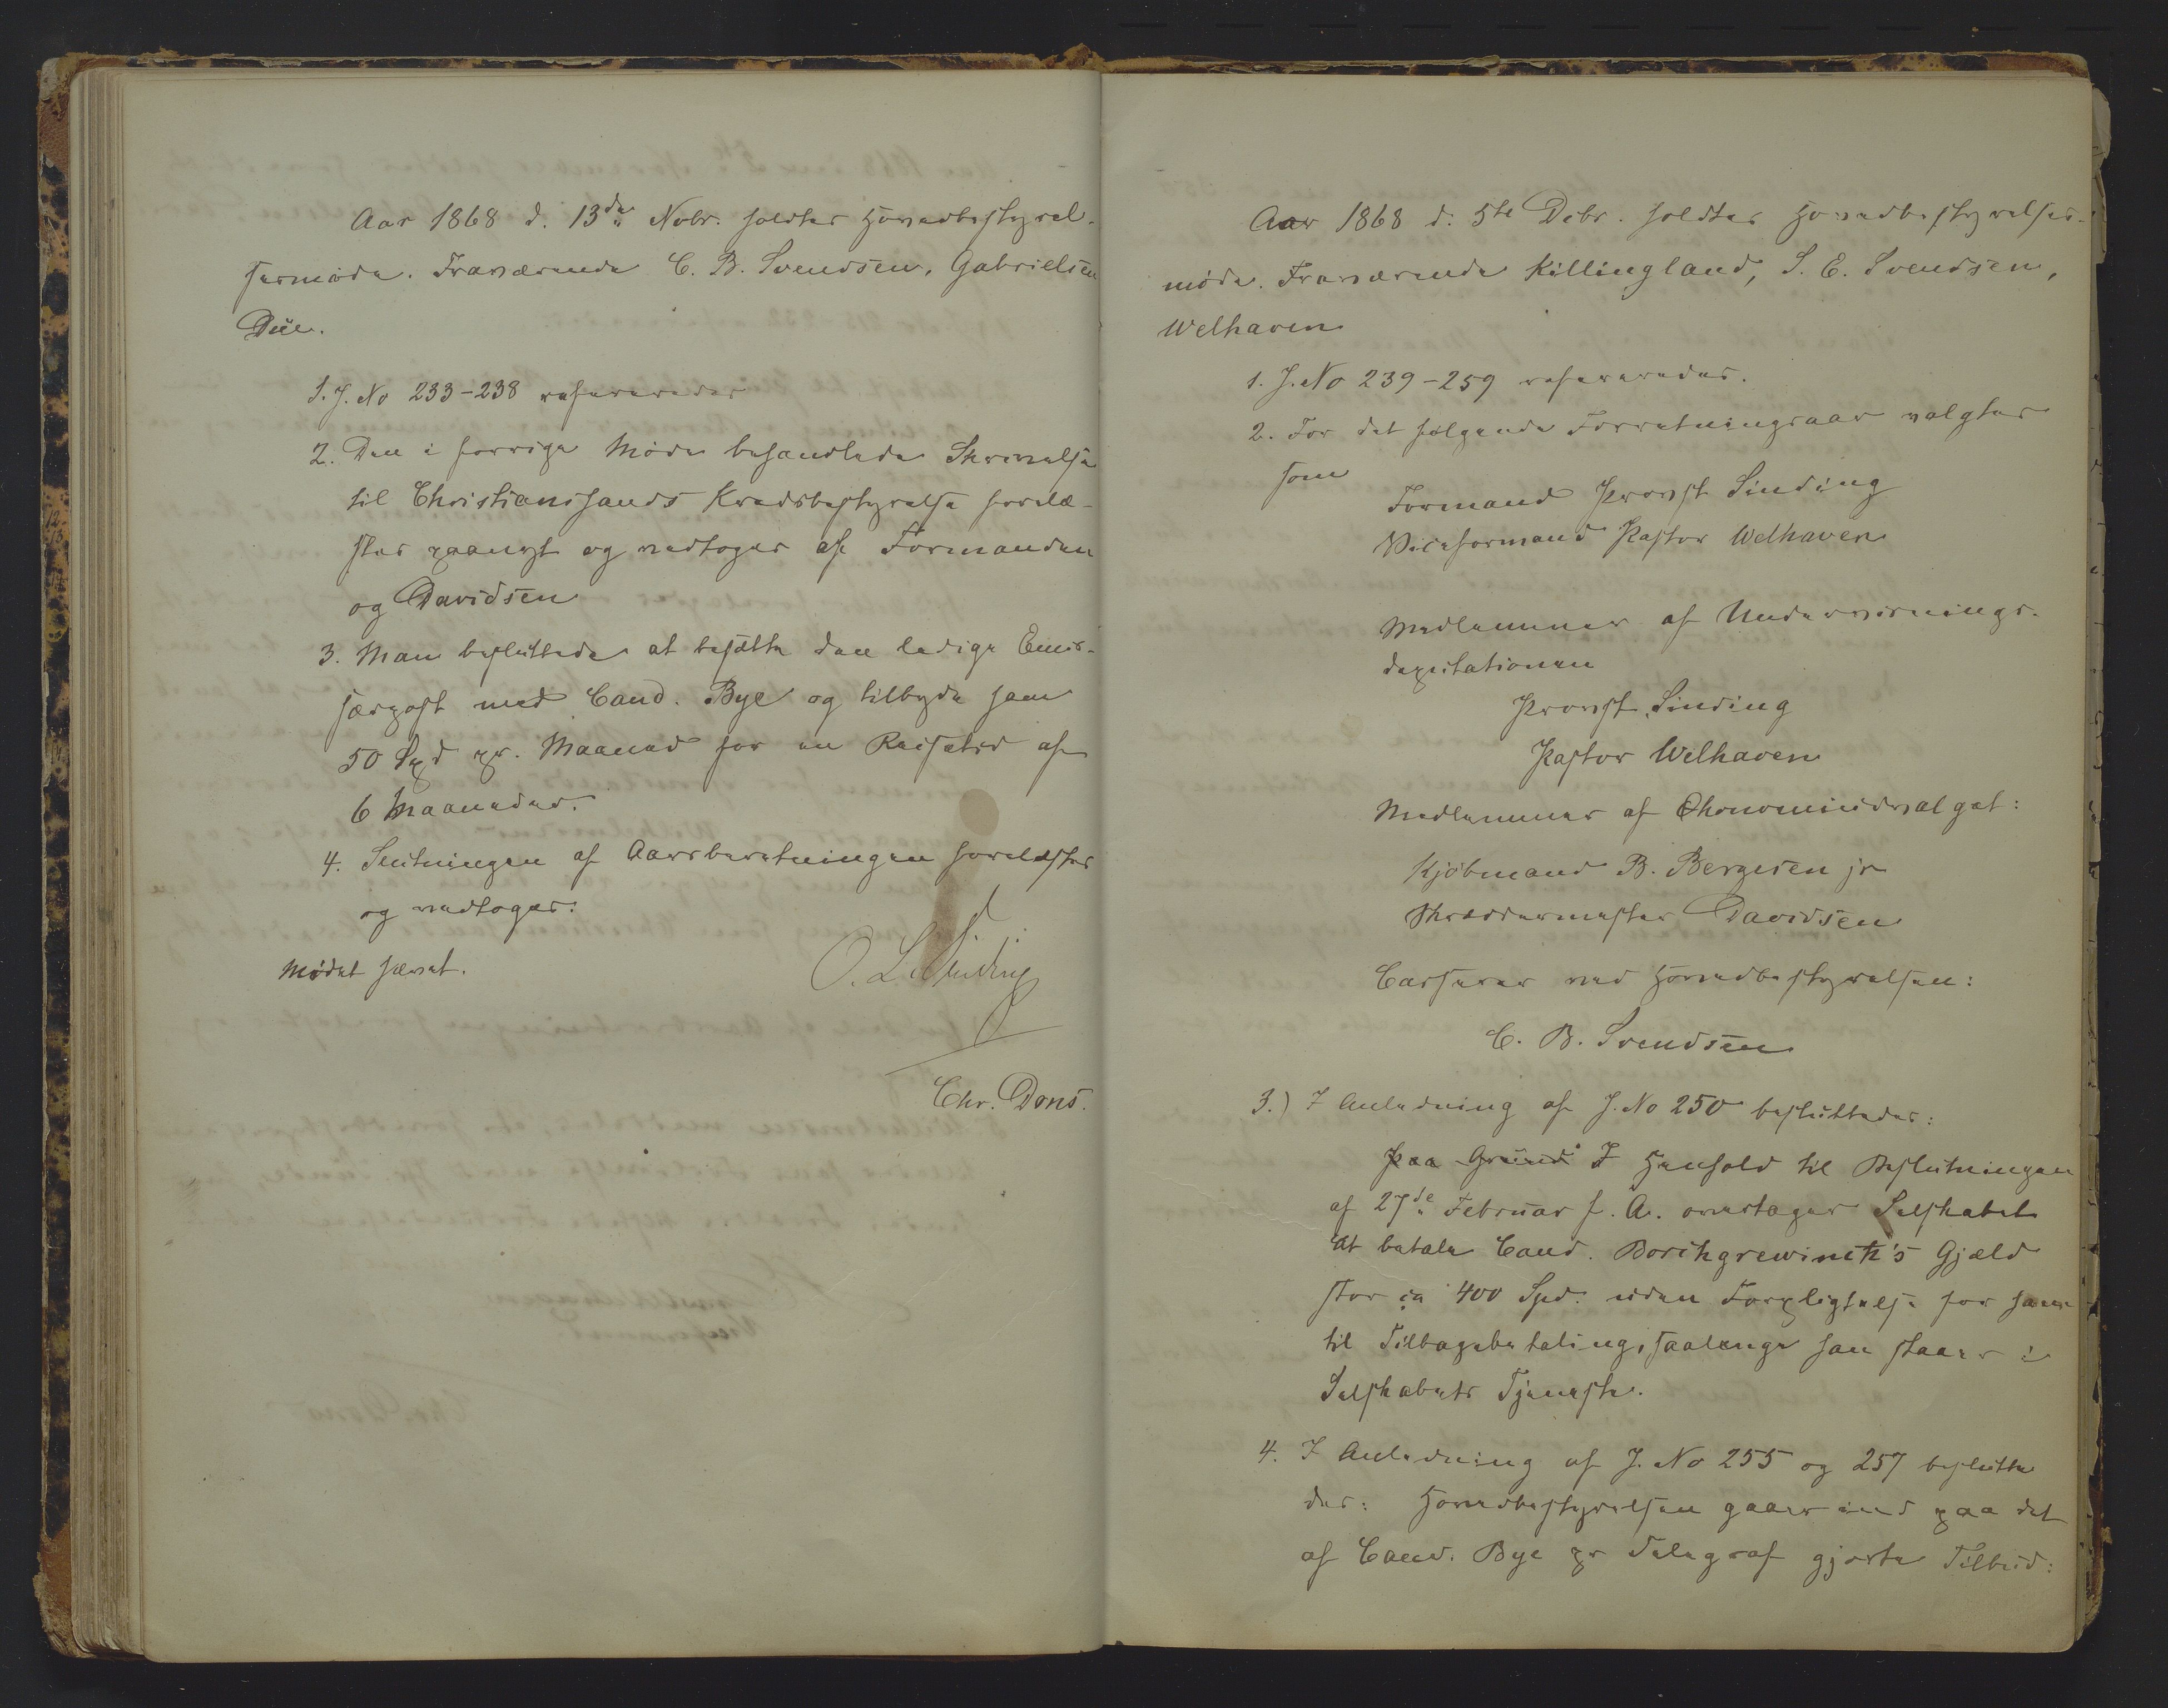 Aar 1868 d. 13de Nobr. holdtes Hovedbestyrel-
sesmøde. Fraværende C. B. Svendsen, Gabrielsen
Due.
1. J. No 233-238 refereredes
2. Den i forrige Møde behandlede Skrivelse
til Christianssands Kredsbestyrelse forelæ-
stes paanyt og vedtoges af Formanden
og Davidsen
3. Man besluttede at besætte den ledige Emis-
særpost med Cand. Bye og tilbyde ham
50 Spd pr. Maaned for en Reisetid af
6 Maaneder.
4. Slutningen af Aarsberetningen forelæstes
og vedtoges.
Mødet hævet.
O. L. Sinding
Chr. Dons.
Aar 1868 d. 5te Debr. holdtes Hovedbestyrelses-
møde. Fraværende Killingland, S. E. Svendsen,
Welhaven
1. J. No 239-259 refereredes.
2. For det følgende Forretningsaar valgtes
som
Formand Provst Sinding
Viceformand Pastor Welhaven
Medlemmer af Undervisnings-
deputationen
Provst Sinding
Pastor Welhaven
Medlemmer af Økonomiudvalget:
Kjøbmand B. Bergesen jr
Skræddermester Davidsen
Casserer ved Hovedbestyrelsen:
C. B. Svendsen
3.) I Anledning af J. No 250 besluttedes:
Paa Grund I Henhold til Beslutningen
af 27de Februar f. A. overtager Selskabet
at betale Cand. Borchgrewinck's Gjæld
stor ca 400 Spd. uden Forpligtelse for ham
til Tilbagebetaling, saalænge han staaer i
Selskabets Tjeneste.
4. I Anledning af J. No 255 og 257 beslutte
des: Hovedbestyrelsen gaaer ind paa det
af Cand. Bye pr Telegraf gjorte Tilbud: